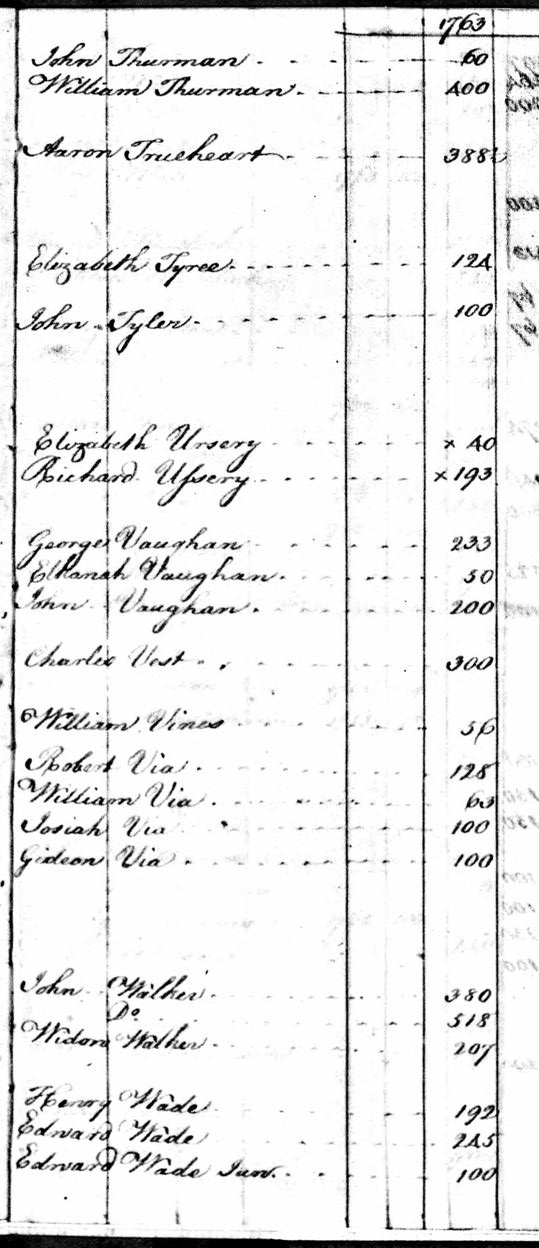 1763
John Thurman 60
William Thurman 400
Aaron Trueheart 388½
Elizabeth Tyree 124
John Tyler 100
Elizabeth Ursery × 40
Richard Ussery × 193
George Vaughan 233
Elkanah Vaughan 50
John Vaughan 200
Charles Vest 300
William Vines 56
Robert Via 128
William Via 63
Josiah Via 100
Gideon Via 100
John Walker 380
Do 518
Widow Walker 207
Henry Wade 192
Edward Wade 245
Edward Wade Jun. 100